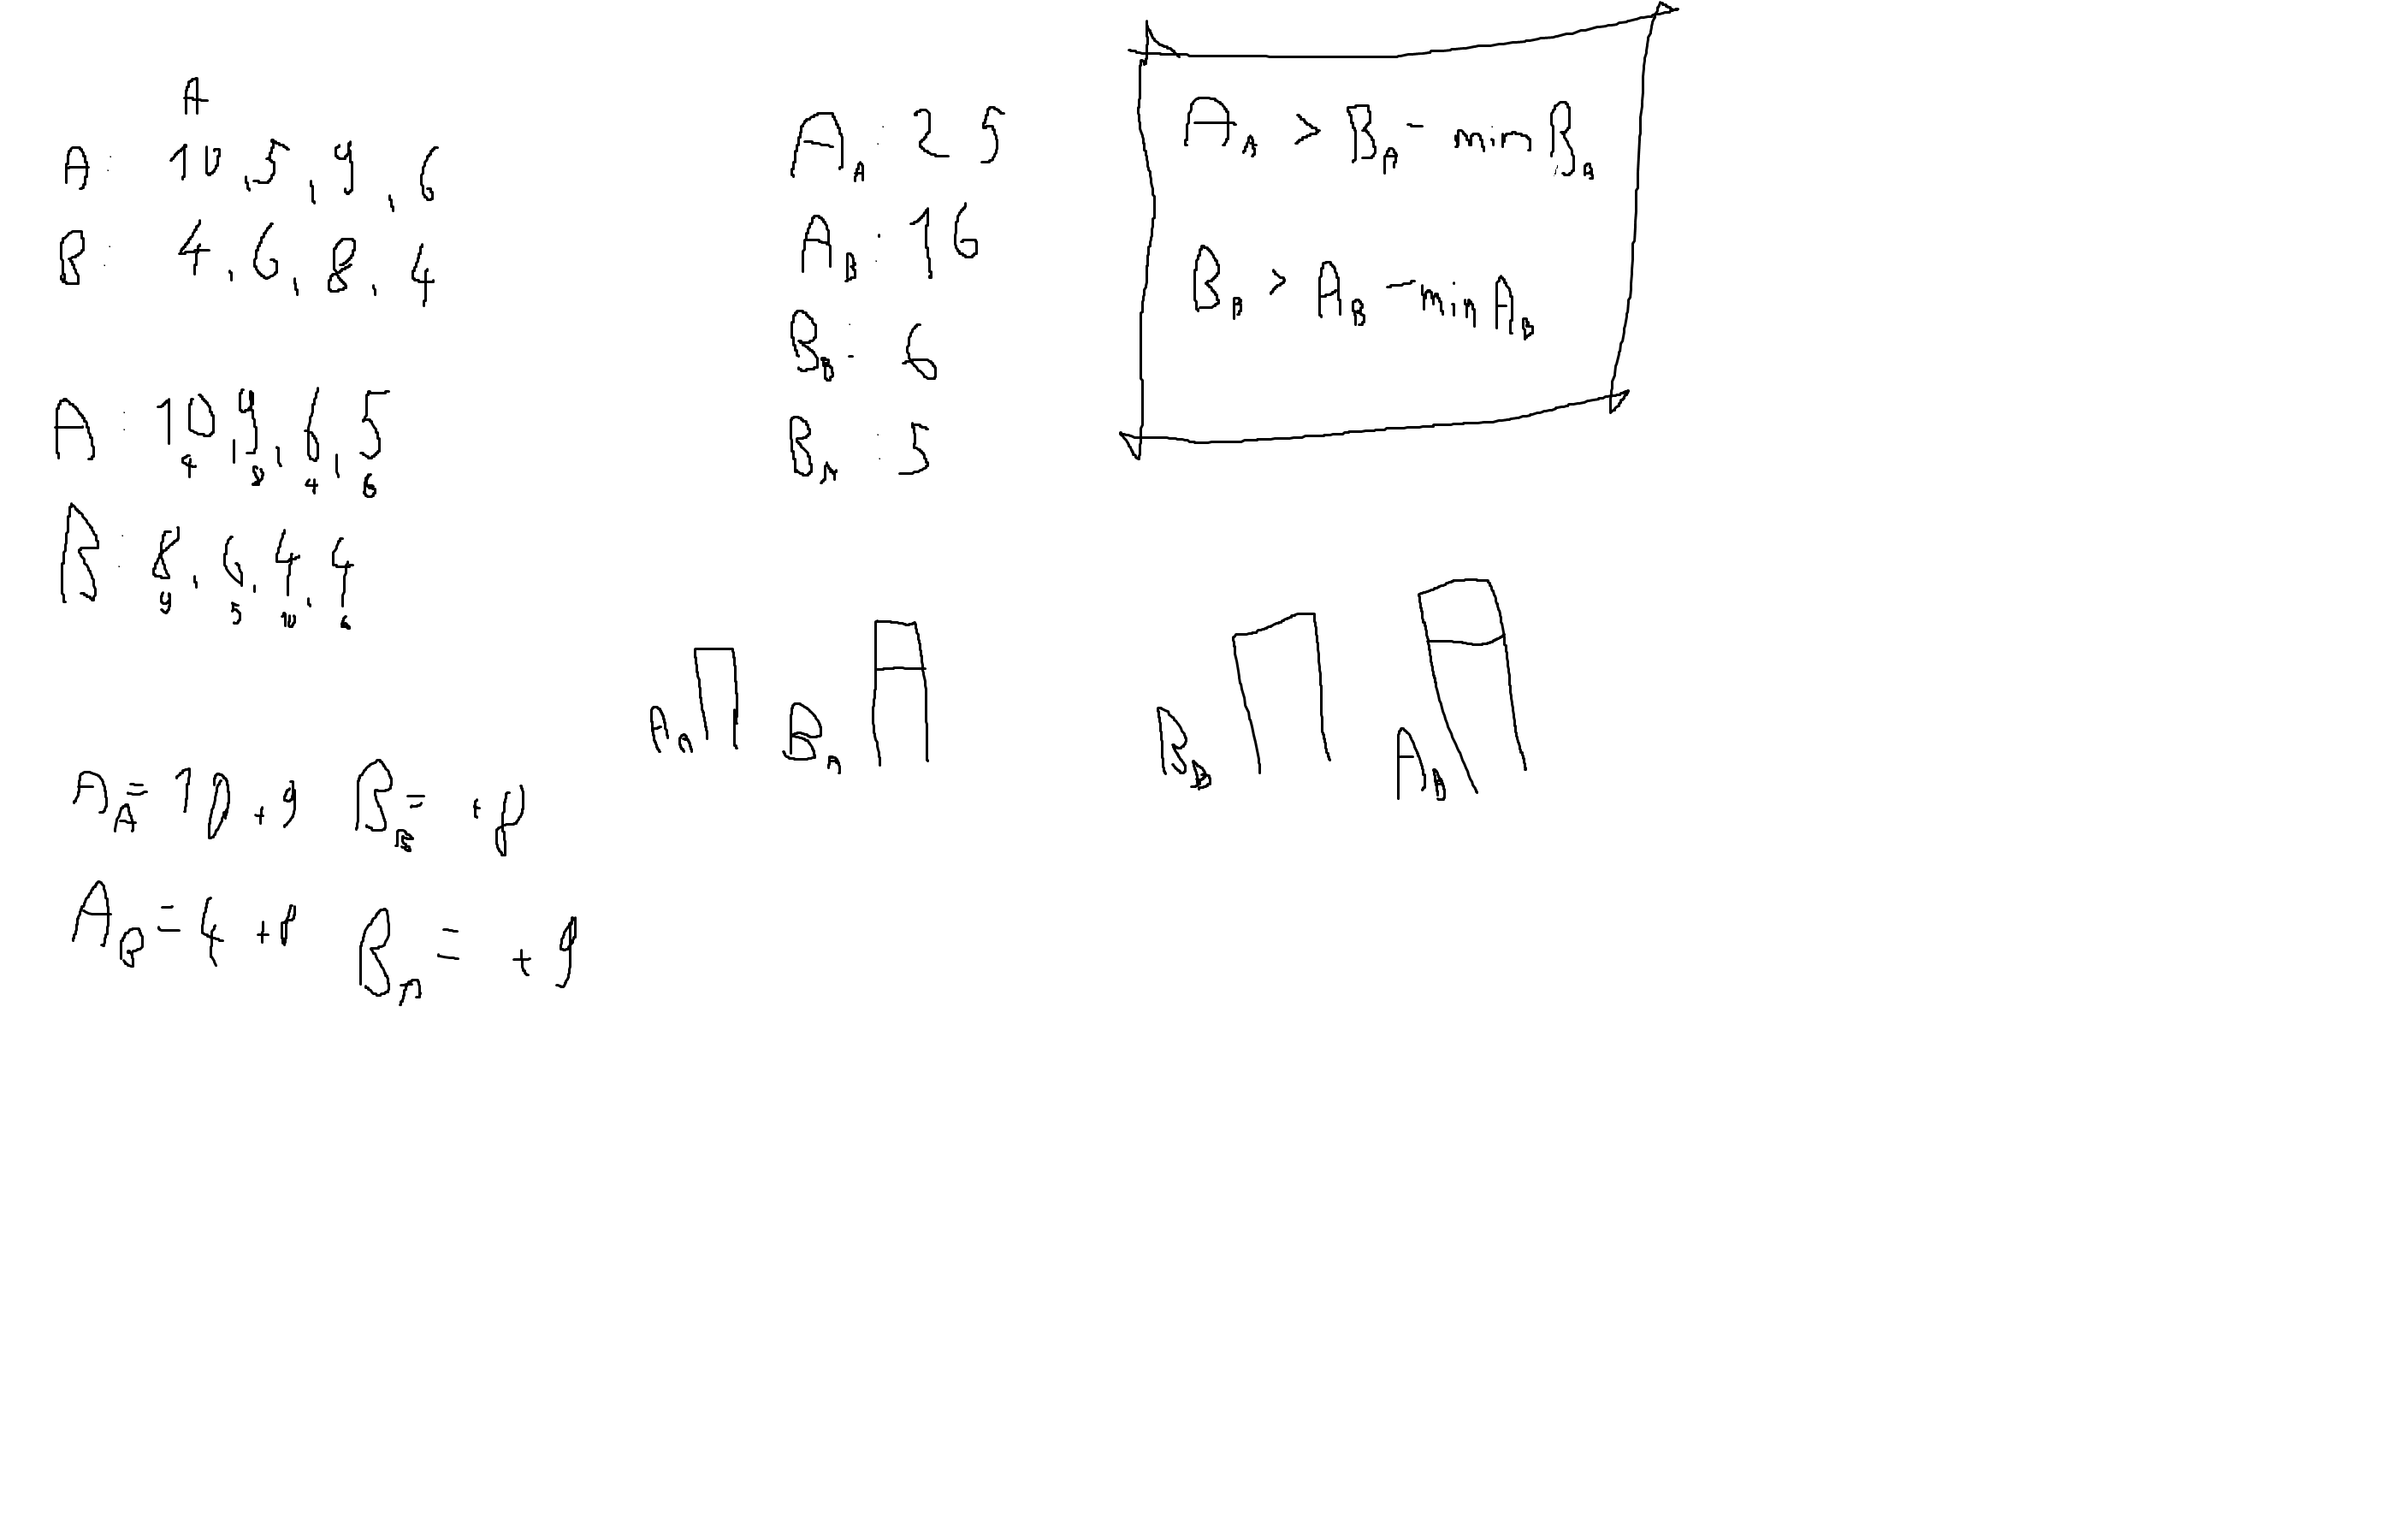 A
A: 10, 5, 9, 6
B: 4, 6, 8, 4
A: 10, 9, 6, 5
4 8 4 6
B: 8, 6, 4, 4
9 5 10 6
A_A = 10 + 9 B_B = + 8
A_B = 4 + 8 B_A = + 9
A_A: 25
A_B: 16
B_B: 6
B_A: 5
A_A > B_A - min B_A
B_B > A_B - min A_B
A_A B_A
B_B A_B